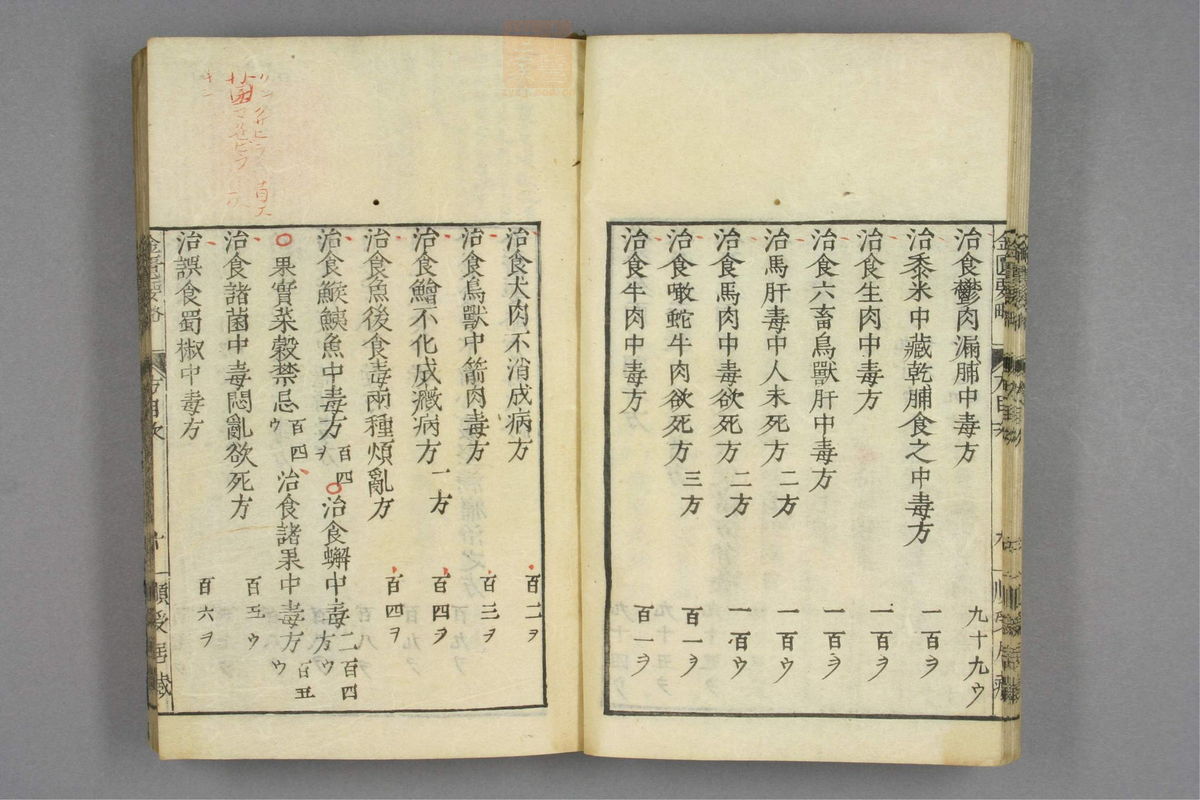 治食鬱肉漏脯中毒方 九十九ウ
治黍米中藏乾脯食之中毒方 一百ヲ
治食生肉中毒方 一百ヲ
治食六畜鳥獸肝中毒方 一百ウ
治馬肝毒中人未死方 二方 一百ウ
治食馬肉中毒欲死方 二方 一百ウ
治食噉蛇牛肉欲死方 三方 百一ヲ
治食牛肉中毒方 百一ヲ
治食犬肉不消成病方 百二ヲ
治食鳥獸中箭肉毒方 百三ヲ
治食鱠不化成癥病方 一方 百四ヲ
治食魚後食毒兩種煩亂方 百四ヲ
治食鯸鮧魚中毒方 百四ヲ 治食蠏中毒方 二百四ウ
果實菜穀禁忌 百四ウ 治食諸果中毒方 百五ウ
治食諸菌中毒悶亂欲死方 百五ウ
治誤食蜀椒中毒方 百六ヲ
金匱要略 方目次 十